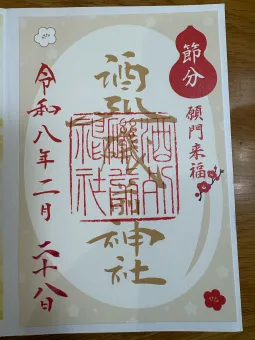 節分
願門来福
酒列磯前神社
酒列
磯前
神社
令和八年二月二十八日